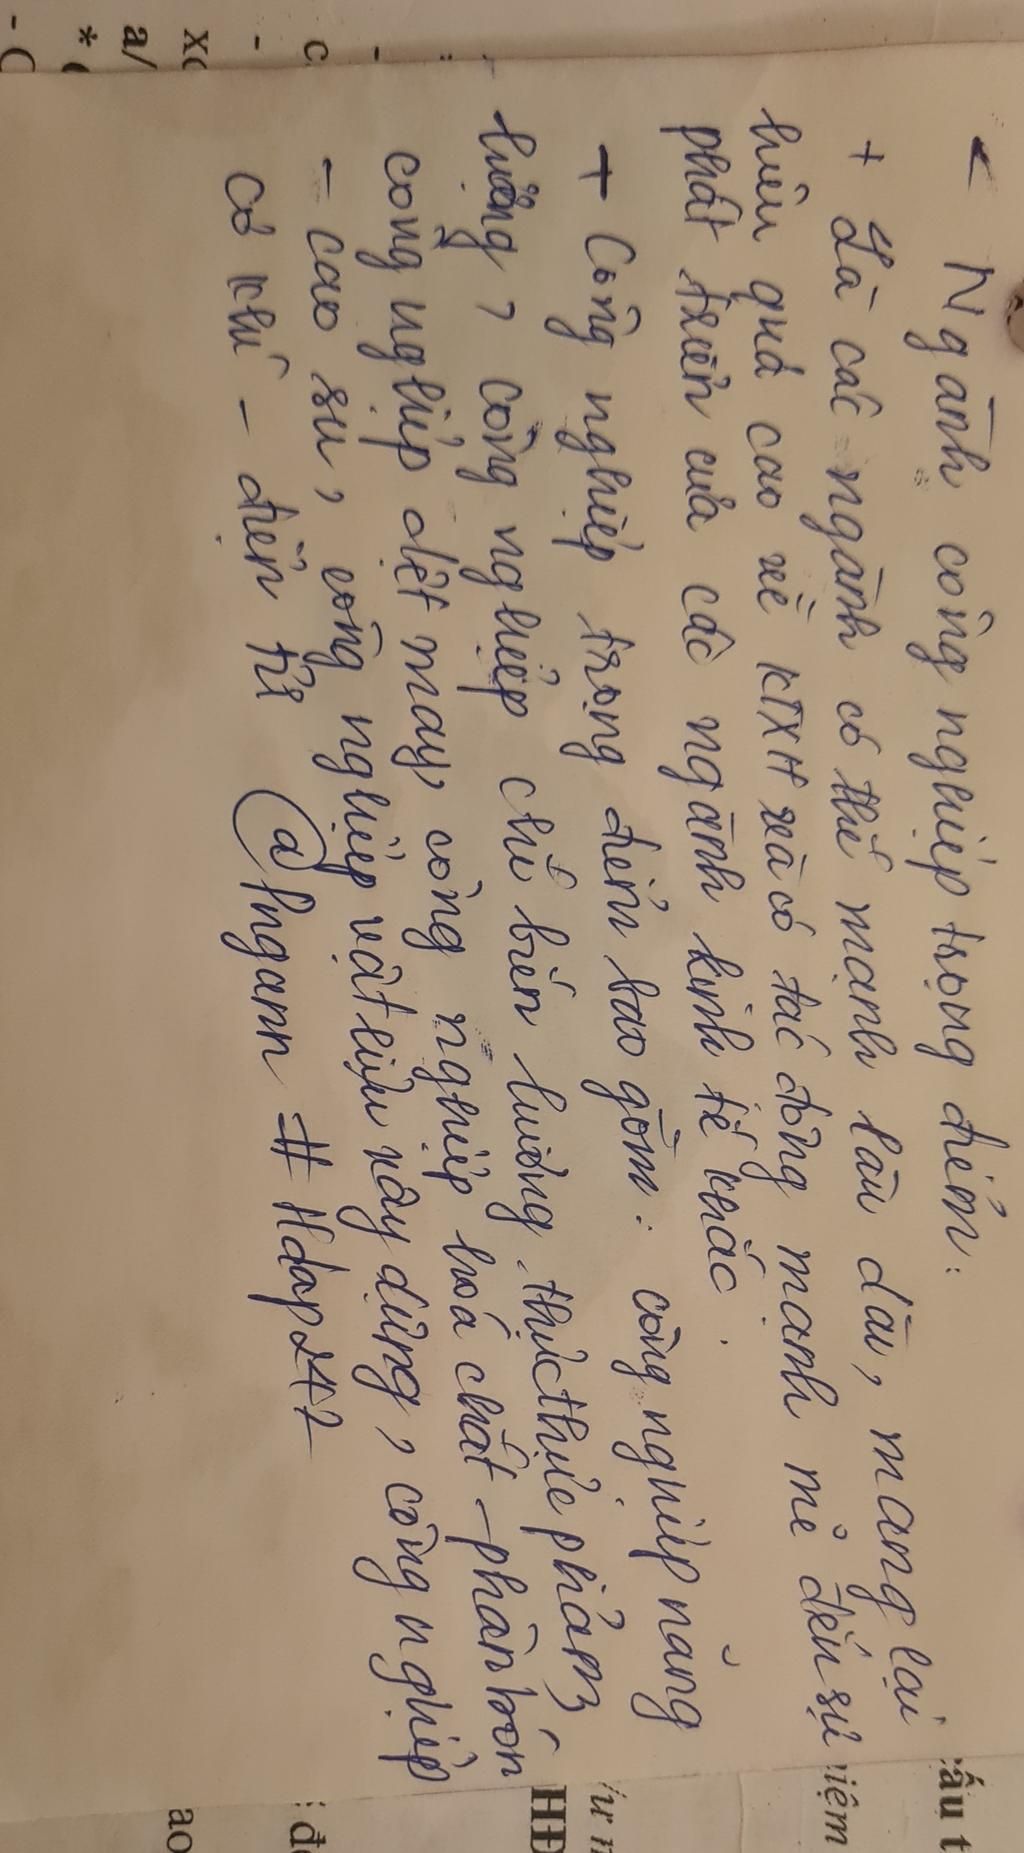 - Ngành công nghiệp trọng điểm:
+ Là các ngành có thế mạnh lâu dài, mang lại
hiệu quả cao về KTXH và có tác động mạnh mẽ đến sự
phát triển của các ngành kinh tế khác.
+ Công nghiệp trọng điểm bao gồm: công nghiệp năng
lượng, công nghiệp chế biến lương thực thực phẩm,
công nghiệp dệt may, công nghiệp hoá chất - phân bón
- cao su, công nghiệp vật liệu xây dựng, công nghiệp
cơ khí - điện tử @fngann # Hdap247
ấu t
iệm
HĐ
ao
c
xc
a/
*
- C